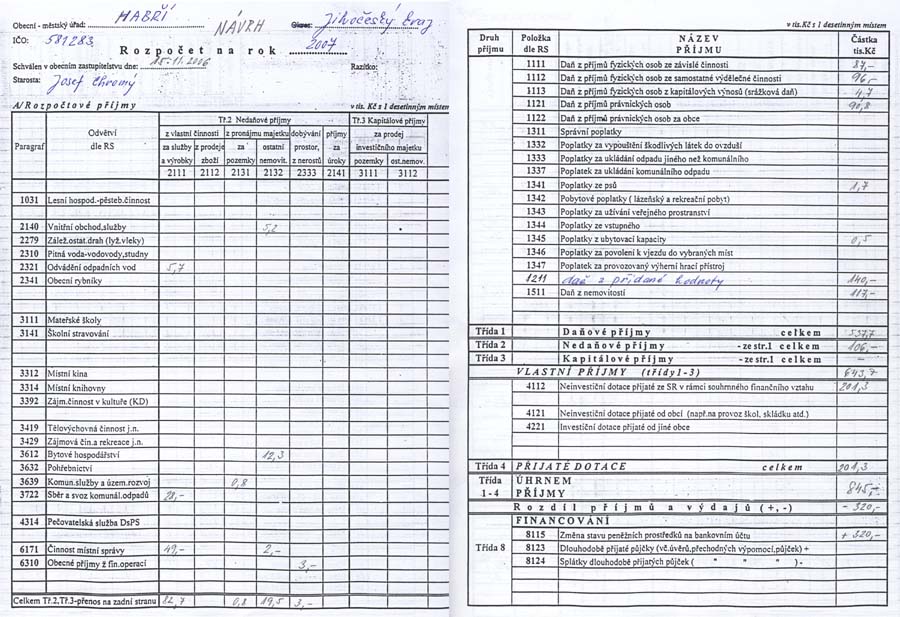 Obecní - městský úřad: MABŘÍ NÁVRH Okres: Jihočeský kraj
IČO: 581283
Rozpočet na rok 2007
Schválen v obecním zastupitelstvu dne: 25-11.2006 Razítko:
Starosta: Josef Chromý
A/Rozpočtové příjmy v tis. Kč s 1 desetinným místem
Paragraf Odvětví dle RS Tř.2 Nedaňové příjmy Tř.3 Kapitálové příjmy
z vlastní činnosti z pronájmu majetku dobývání příjmy za prodej
za služby z prodeje za ostatní prostor, za investičního majetku
a výrobky zboží pozemky nemovit. z nerostů úroky pozemky ost.nemov.
2111 2112 2131 2132 2333 2141 3111 3112
1031 Lesní hospod.-pěsteb.činnost
2140 Vnitřní obchod,služby 5,2
2279 Zálež.ostat.drah (lyž.vleky)
2310 Pitná voda-vodovody,studny
2321 Odvádění odpadních vod 5,7
2341 Obecní rybníky
3111 Mateřské školy
3141 Školní stravování
3312 Místní kina
3314 Místní knihovny
3392 Zájm.činnost v kultuře (KD)
3419 Tělovýchovná činnost j.n.
3429 Zájmová čin.a rekreace j.n.
3612 Bytové hospodářství 12,3
3632 Pohřebnictví
3639 Komun.služby a územ.rozvoj 0,8
3722 Sběr a svoz komunál.odpadů 28,-
4314 Pečovatelská služba DsPS
6171 Činnost místní správy 49,- 2,-
6310 Obecné příjmy z fin.operací 3,-
Celkem Tř.2,Tř.3-přenos na zadní stranu 82,7 0,8 19,5 3,-
v tis.Kč s 1 desetinným místem
Druh příjmu Položka dle RS NÁZEV PŘÍJMU Částka tis.Kč
1111 Daň z příjmů fyzických osob ze závislé činnosti 87,-
1112 Daň z příjmů fyzických osob ze samostatné výdělečné činnosti 96,-
1113 Daň z příjmů fyzických osob z kapitálových výnosů (srážková daň) 4,7
1121 Daň z příjmů právnických osob 90,8
1122 Daň z příjmů právnických osob za obce
1311 Správní poplatky
1332 Poplatky za vypouštění škodlivých látek do ovzduší
1333 Poplatky za ukládání odpadu jiného než komunálního
1337 Poplatek za ukládání komunálního odpadu
1341 Poplatky ze psů 1,7
1342 Pobytové poplatky ( lázeňský a rekreační pobyt)
1343 Poplatky za užívání veřejného prostranství
1344 Poplatky ze vstupného
1345 Poplatky z ubytovací kapacity 0,5
1346 Poplatky za povolení k vjezdu do vybraných míst
1347 Poplatek za provozovaný výherní hrací přístroj
1211 daň z přidané hodnoty 140,-
1511 Daň z nemovitostí 117,-
Třída 1 Daňové příjmy celkem 537,7
Třída 2 Nedaňové příjmy -ze str.1 celkem 106,-
Třída 3 Kapitálové příjmy -ze str.1 celkem -
VLASTNÍ PŘÍJMY (třídy1-3) 643,7
4112 Neinvestiční dotace přijaté ze SR v rámci souhrnného finančního vztahu 201,3
4121 Neinvestiční dotace přijaté od obcí (např.na provoz škol, skládku atd.)
4221 Investiční dotace přijaté od jiné obce
Třída 4 PŘIJATÉ DOTACE celkem 201,3
Třída 1-4 ÚHRNEM PŘÍJMY 845,-
Rozdíl příjmů a výdajů (+,-) - 320,-
FINANCOVÁNÍ
Třída 8 8115 Změna stavu peněžních prostředků na bankovním účtu + 320,-
8123 Dlouhodobé přijaté půjčky (vč.úvěrů,přechodných výpomocí,půjček) +
8124 Splátky dlouhodobě přijatých půjček ( " " " ) -